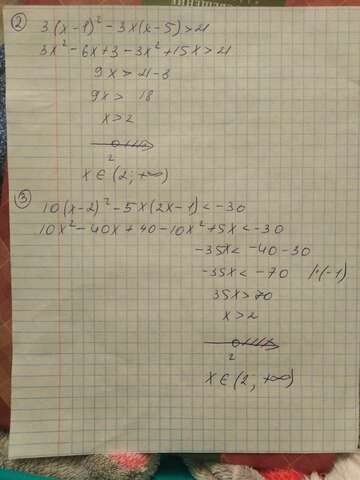 ②
3(x-1)² - 3x(x-5) > 21
3x² - 6x + 3 - 3x² + 15x > 21
9x > 21 - 3
9x > 18
x > 2
2
x ∈ (2; +∞)
③
10(x-2)² - 5x(2x-1) < -30
10x² - 40x + 40 - 10x² + 5x < -30
-35x < -40 - 30
-35x < -70 |·(-1)
35x > 70
x > 2
2
x ∈ (2; +∞)